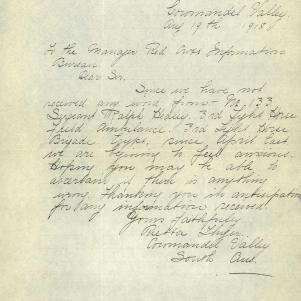 Coromandel Valley.
Aug 19th 1918
To the Manager Red Cross Information
Bureau.
Dear Sir.
Since we have not
received any word from No 133
Sergeant Ralph Hedley, 3rd Light Horse
Field Ambulance. 3rd Light Horse
Brigade Egypt, since April last
we are begining to feel anxious.
Hoping you may be able to
ascertain if there is anything
wrong. Thanking you in anticipation
for any information received
Yours Faithfully
Coromandel Valley
South Aus.